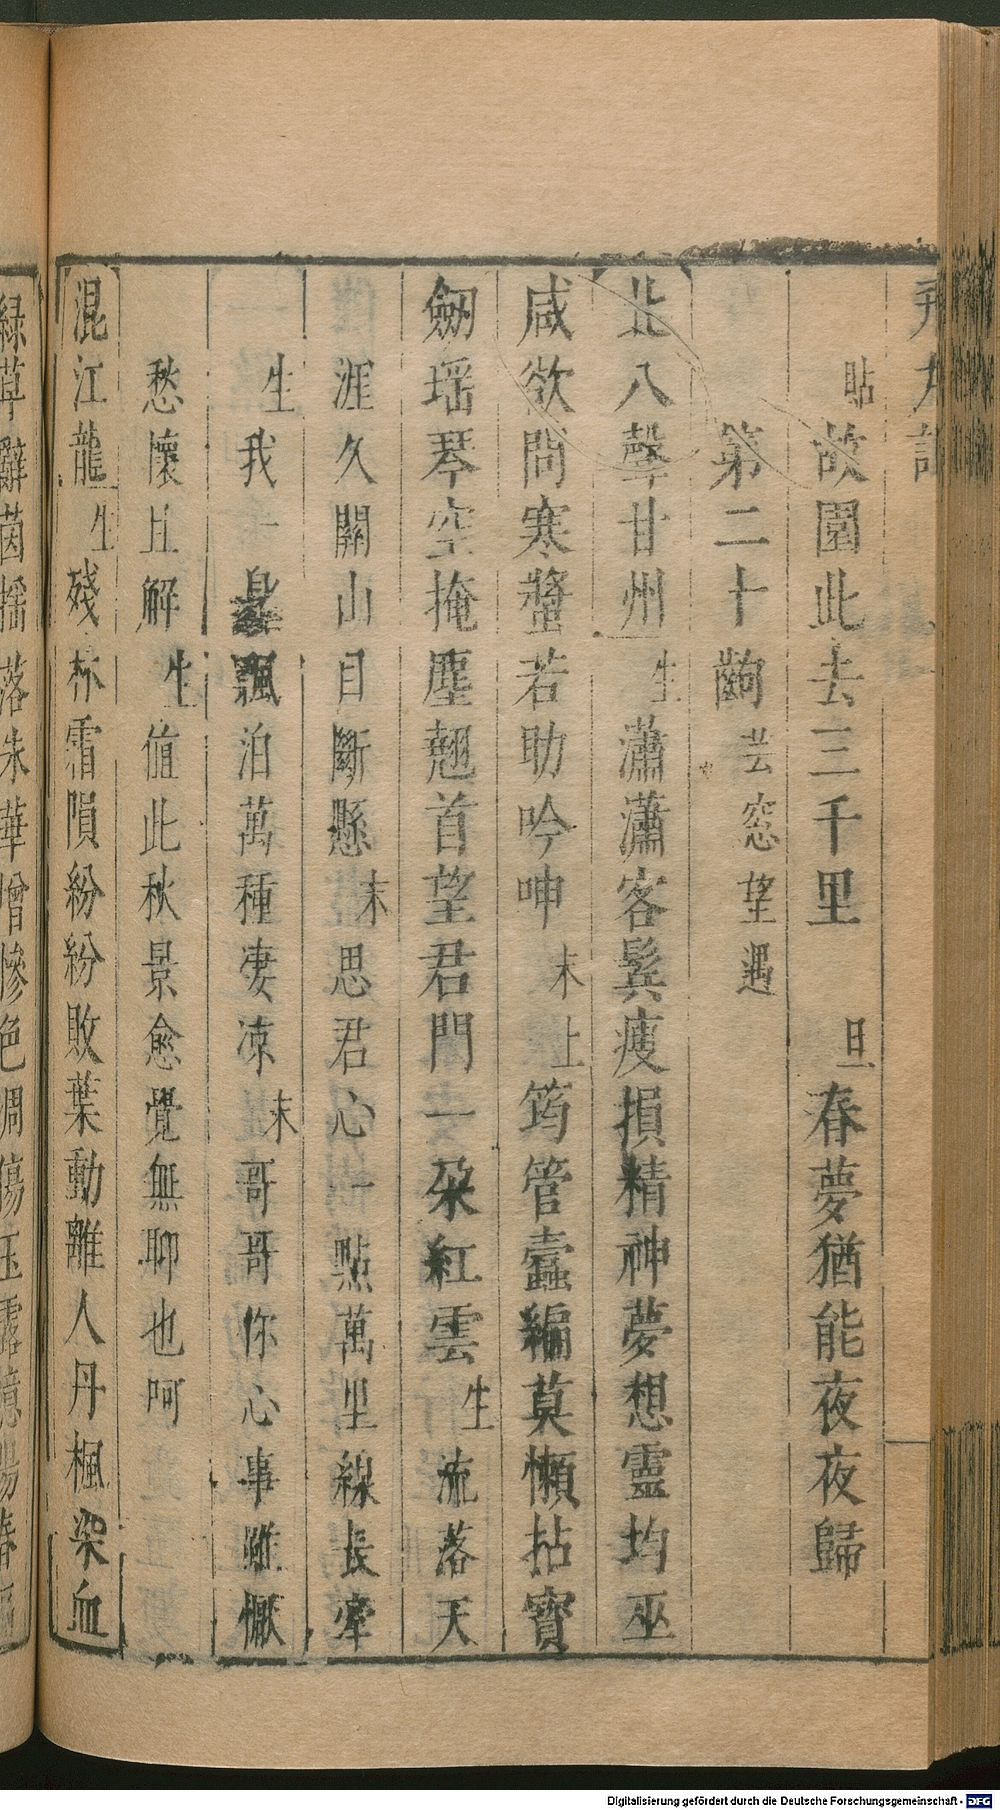 貼故園此去三千里　旦春夢猶能夜夜歸
第二十齣芸窓望遇
北八聲甘州生瀟瀟客鬂瘦損精神夢想靈均巫
咸欲問寒螿若助吟呻末上筠管蠹編莫懶拈寶
劒瑶琴空掩塵翹首望君門一朶紅雲生流落天
涯久關山目斷懸末思君心一點萬里線長牽
生我一身飄泊萬種凄凉末哥哥你心事雖懨
愁懷且解生值此秋景愈覺無聊也呵
混江龍生殘林霜隕紛紛敗葉動離人丹楓染血
緑草辭茵揺落朱華增慘色凋傷玉露憶陽春
Digitalisierung gefördert durch die Deutsche Forschungsgemeinschaft - DFG